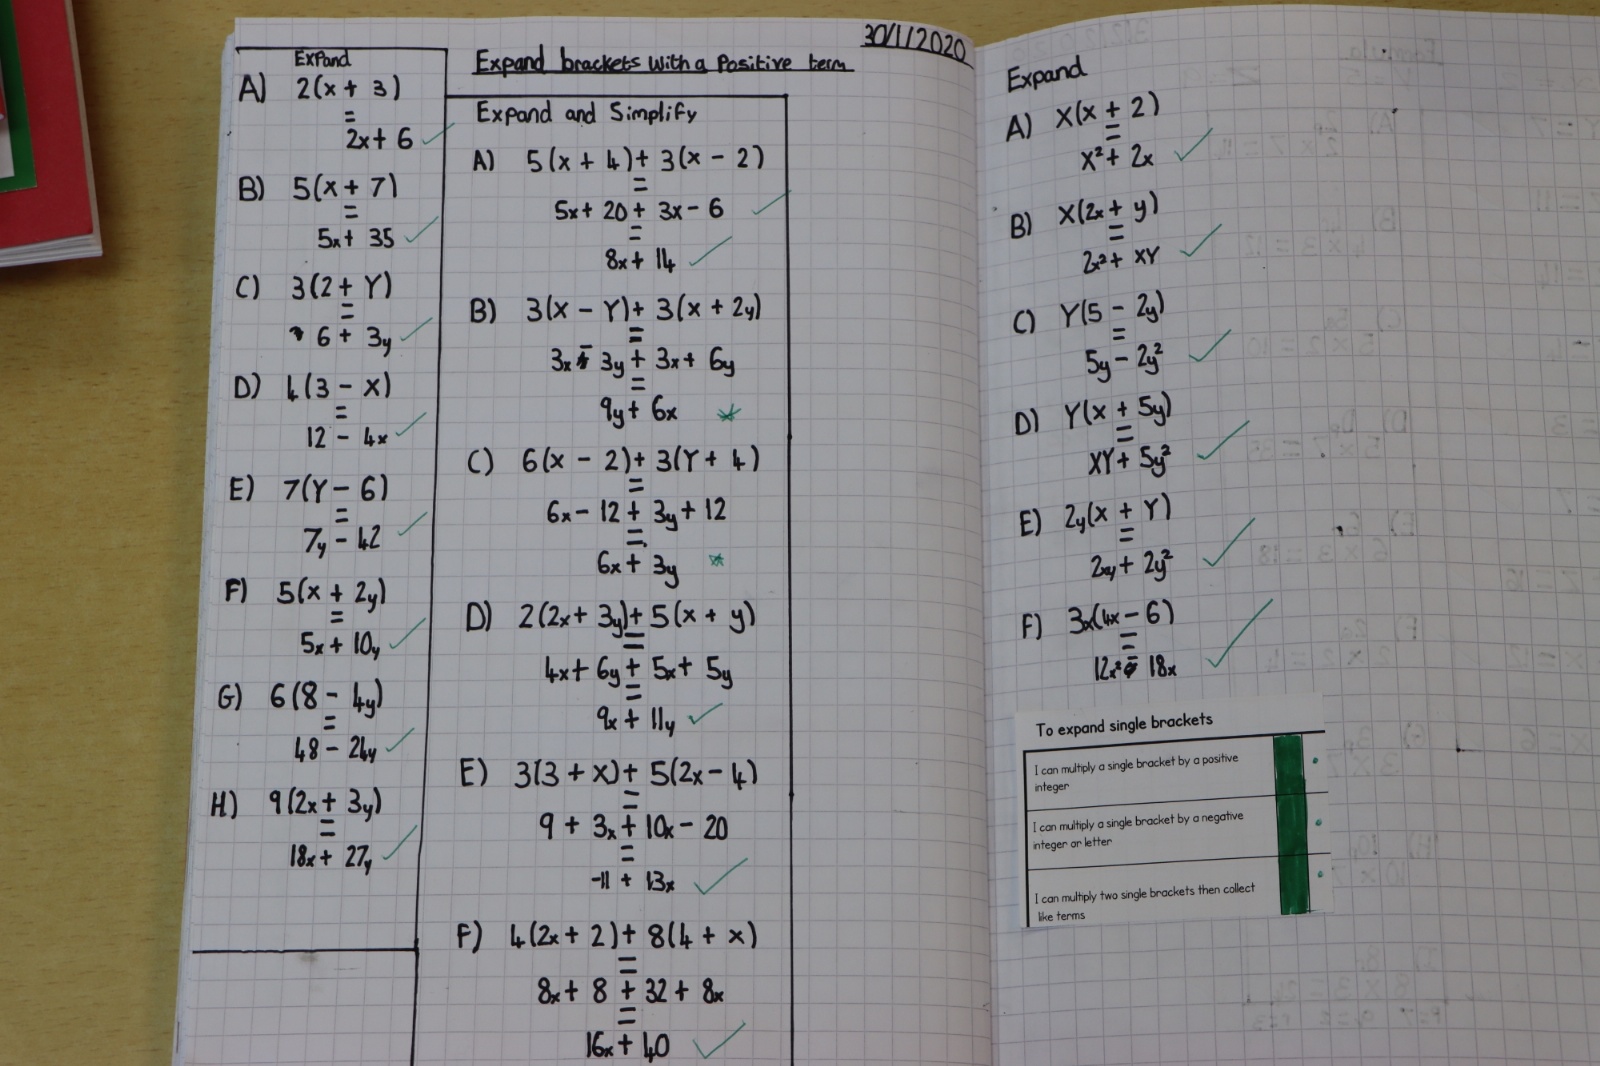 30/1/2020
Expand
A) 2(x + 3)
=
2x + 6
B) 5(x + 7)
=
5x + 35
C) 3(2 + Y)
=
6 + 3y
D) 4(3 - x)
=
12 - 4x
E) 7(Y - 6)
=
7y - 42
F) 5(x + 2y)
=
5x + 10y
G) 6(8 - 4y)
=
48 - 24y
H) 9(2x + 3y)
=
18x + 27y
Expand brackets with a Positive term
Expand and Simplify
A) 5(x + 4) + 3(x - 2)
=
5x + 20 + 3x - 6
=
8x + 14
B) 3(x - Y) + 3(x + 2y)
=
3x - 3y + 3x + 6y
=
9y + 6x
C) 6(x - 2) + 3(Y + 4)
=
6x - 12 + 3y + 12
=
6x + 3y
D) 2(2x + 3y) + 5(x + y)
=
4x + 6y + 5x + 5y
=
9x + 11y
E) 3(3 + x) + 5(2x - 4)
=
9 + 3x + 10x - 20
=
-11 + 13x
F) 4(2x + 2) + 8(4 + x)
=
8x + 8 + 32 + 8x
=
16x + 40
Expand
A) X(x + 2)
=
x² + 2x
B) X(2x + y)
=
2x² + XY
C) Y(5 - 2y)
=
5y - 2y²
D) Y(x + 5y)
=
XY + 5y²
E) 2y(x + Y)
=
2xy + 2y²
F) 3x(4x - 6)
=
12x² - 18x
To expand single brackets
I can multiply a single bracket by a positive
integer
I can multiply a single bracket by a negative
integer or letter
I can multiply two single brackets then collect
like terms